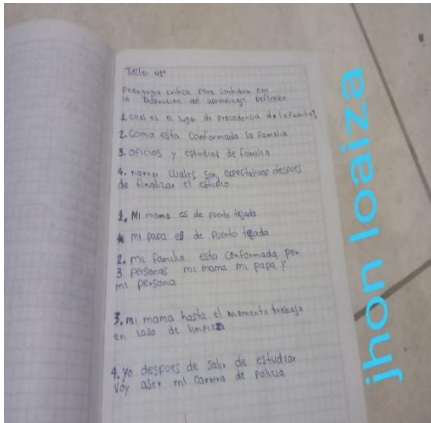 Taller #1
Pedagogia critica para contribuir en
la
1. cual es el lugar de procedencia de la familia?
2. Como esta Conformada la familia
3. oficios y estudios de familia
4. narrar cuales son expectativas despues
de finalizar el estudio
1. Mi mama es de puerto tejada
* mi papa es de puerto tejada
2. mi familia esta conformada por
3 personas mi mama mi papa y
mi persona
3. mi mama hasta el momento trabaja
en casa de limpieza
4. yo despues de salir de estudiar
voy aser mi carrera de policia
jhon loaiza